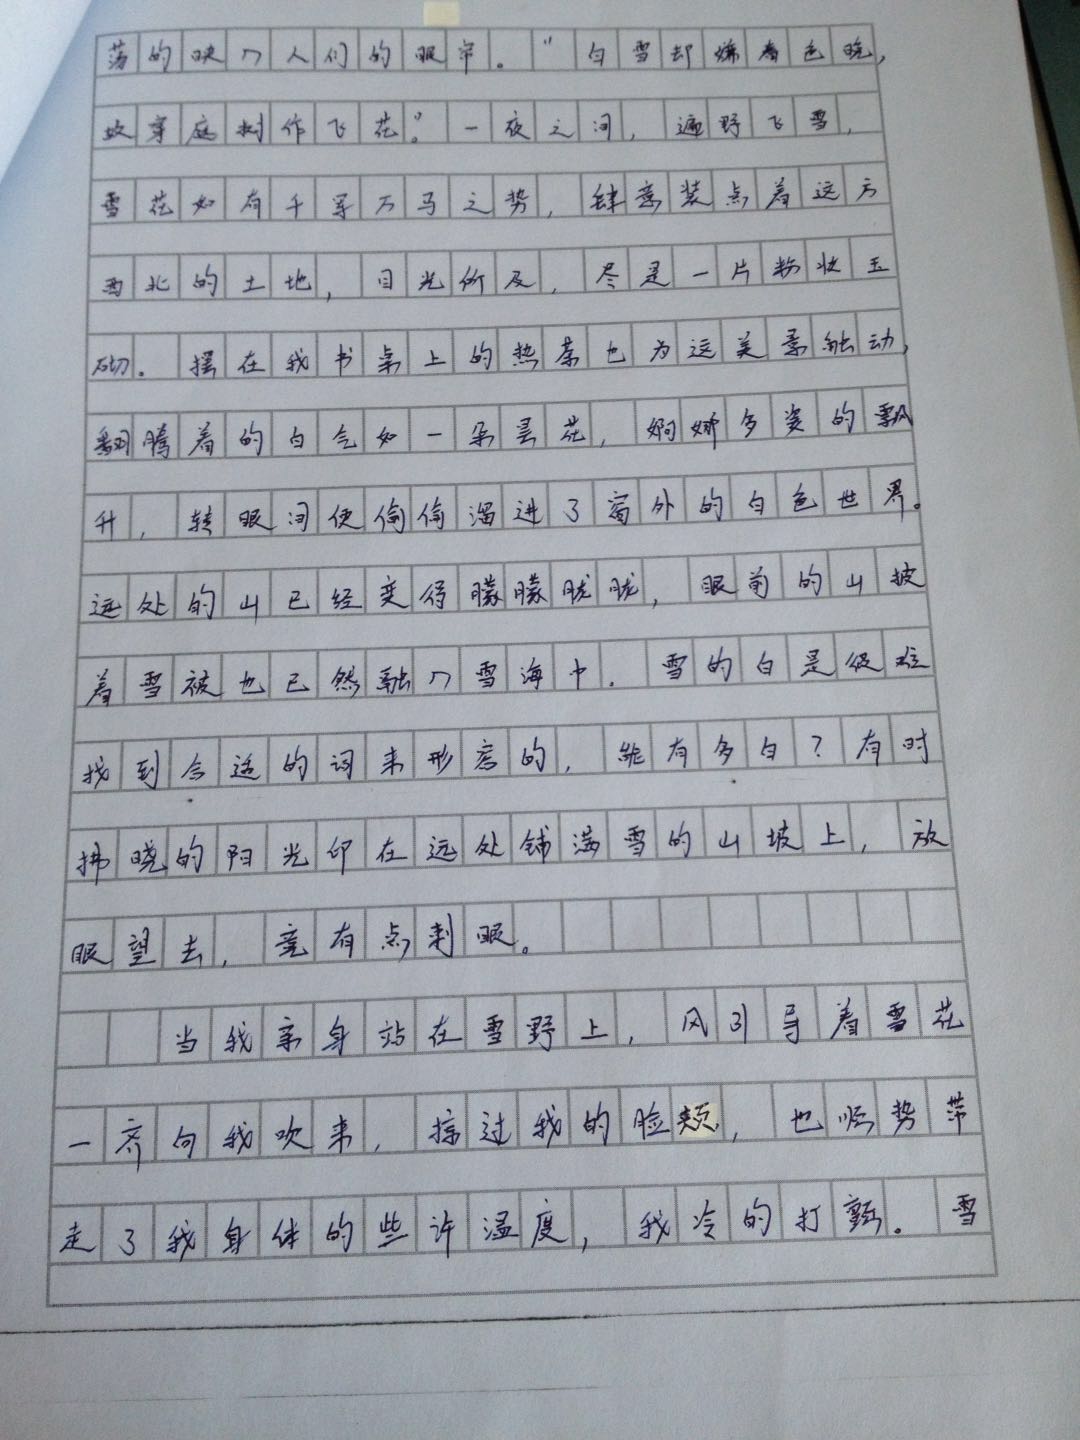 荡的映入人们的眼帘。“白雪却嫌春色晚，
故穿庭树作飞花。”一夜之间，遍野飞雪，
雪花如有千军万马之势，肆意装点着这方
西北的土地，目光所及，尽是一片粉状玉
砌。摆在我书桌上的热茶也为这美景触动，
翻腾着的白气如一朵昙花，婀娜多姿的飘
升，转眼间便偷偷溜进了窗外的白色世界。
远处的山已经变得朦朦胧胧，眼前的山披
着雪被也已然融入雪海中．雪的白是很难
找到合适的词来形容的，能有多白？有时
拂晓的阳光印在远处铺满雪的山坡上，放
眼望去，竟有点刺眼。
当我亲身站在雪野上，风引导着雪花
一齐向我吹来，掠过我的脸颊，也顺势带
走了我身体的些许温度，我冷的打颤。雪